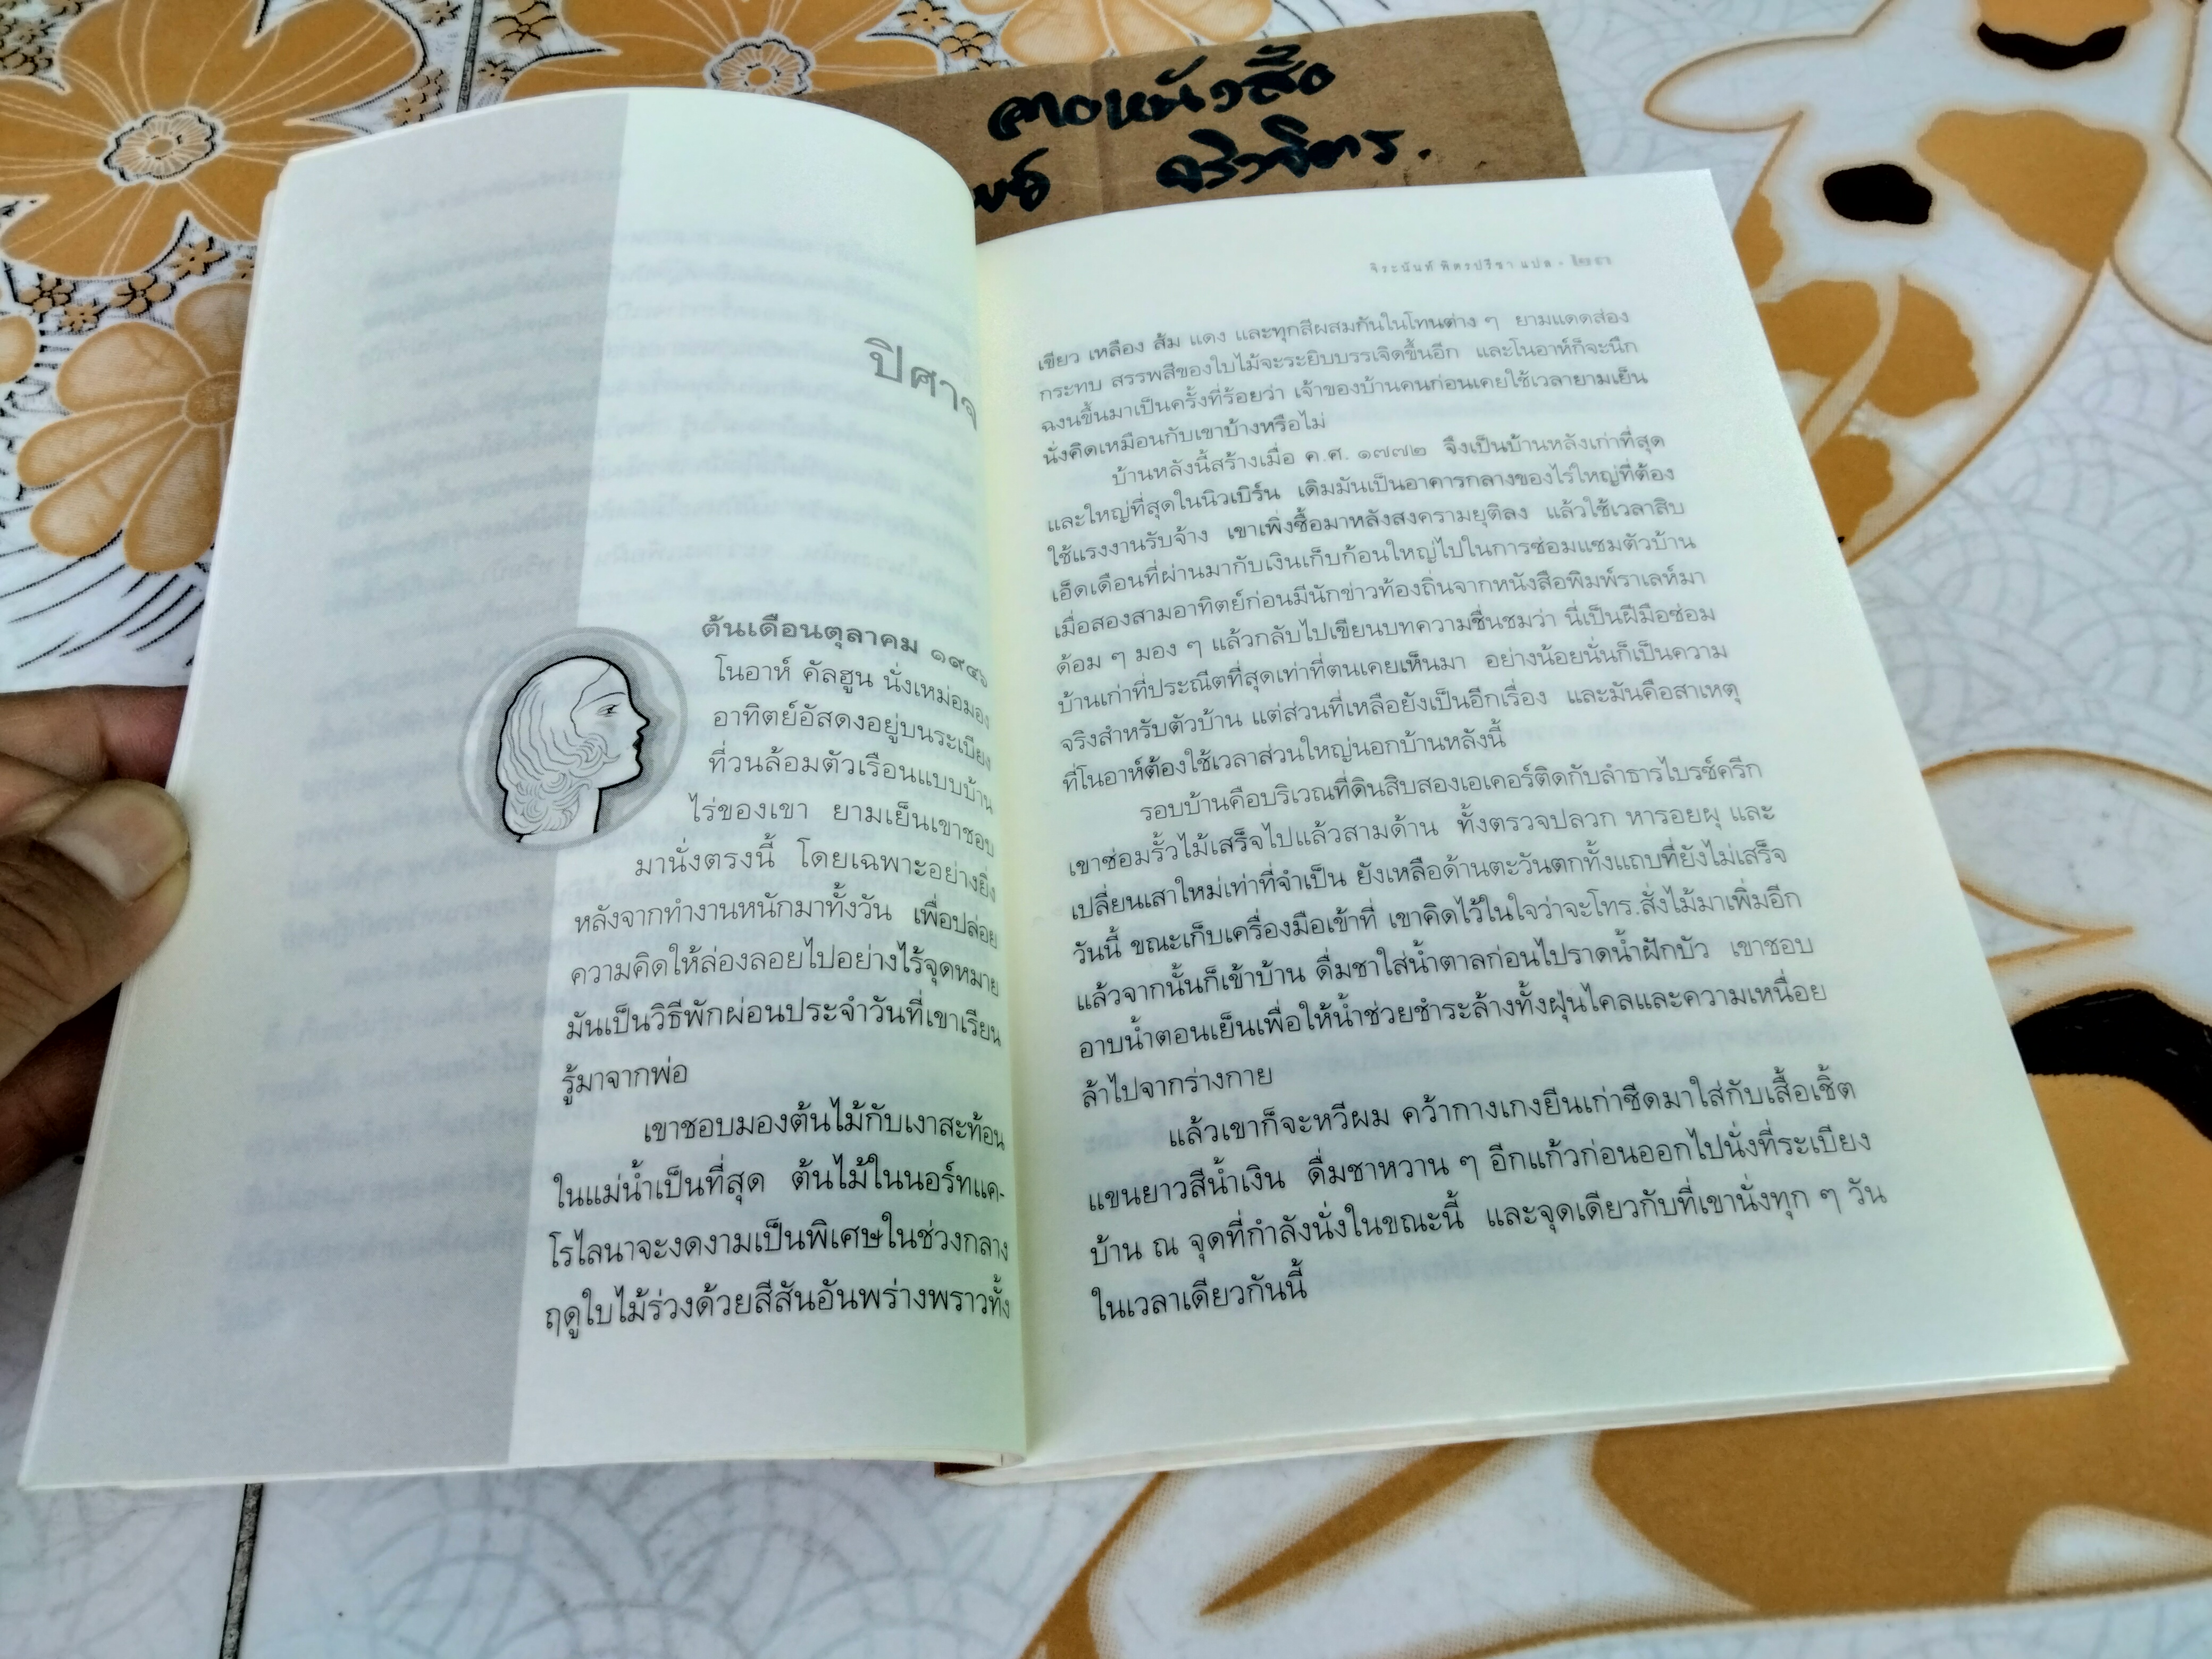 ลางหนังสือ
จริวจิตร.
ปิศาจ
ต้นเดือนตุลาคม ๑๙๔๖
โนอาห์ คัลฮูน นั่งเหม่อมอง
อาทิตย์อัสดงอยู่บนระเบียง
ที่วนล้อมตัวเรือนแบบบ้าน
ไร่ของเขา ยามเย็นเขาชอบ
มานั่งตรงนี้ โดยเฉพาะอย่างยิ่ง
หลังจากทำงานหนักมาทั้งวัน เพื่อปล่อย
ความคิดให้ล่องลอยไปอย่างไร้จุดหมาย
มันเป็นวิธีพักผ่อนประจำวันที่เขาเรียน
รู้มาจากพ่อ
เขาชอบมองต้นไม้กับเงาสะท้อน
ในแม่น้ำเป็นที่สุด ต้นไม้ในนอร์ทแค-
โรไลนาจะงดงามเป็นพิเศษในช่วงกลาง
ฤดูใบไม้ร่วงด้วยสีสันอันพร่างพราวทั้ง
จิระนันท์ พิตรปรีชา แปล •
เขียว เหลือง ส้ม แดง และทุกสีผสมกันในโทนต่าง ๆ ยามแดดส่อง
กระทบ สรรพสีของใบไม้จะระยิบบรรเจิดขึ้นอีก และโนอาห์ก็จะนึก
ฉงนขึ้นมาเป็นครั้งที่ร้อยว่า เจ้าของบ้านคนก่อนเคยใช้เวลายามเย็น
นั่งคิดเหมือนกับเขาบ้างหรือไม่
บ้านหลังนี้สร้างเมื่อ ค.ศ. ๑๗๗๒ จึงเป็นบ้านหลังเก่าที่สุด
และใหญ่ที่สุดในนิวเบิร์น เดิมมันเป็นอาคารกลางของไร่ใหญ่ที่ต้อง
ใช้แรงงานรับจ้าง เขาเพิ่งซื้อมาหลังสงครามยุติลง แล้วใช้เวลาสิบ
เอ็ดเดือนที่ผ่านมากับเงินเก็บก้อนใหญ่ไปในการซ่อมแซมตัวบ้าน
เมื่อสองสามอาทิตย์ก่อนมีนักข่าวท้องถิ่นจากหนังสือพิมพ์ราเลห์มา
ด้อม ๆ มอง ๆ แล้วกลับไปเขียนบทความชื่นชมว่า นี่เป็นฝีมือซ่อม
บ้านเก่าที่ประณีตที่สุดเท่าที่ตนเคยเห็นมา อย่างน้อยนั่นก็เป็นความ
จริงสำหรับตัวบ้าน แต่ส่วนที่เหลือยังเป็นอีกเรื่อง และมันคือสาเหตุ
ที่โนอาห์ต้องใช้เวลาส่วนใหญ่นอกบ้านหลังนี้
รอบบ้านคือบริเวณที่ดินสิบสองเอเคอร์ติดกับลำธารไบรซ์ครีก
เขาซ่อมรั้วไม้เสร็จไปแล้วสามด้าน ทั้งตรวจปลวก หารอยผุ และ
เปลี่ยนเสาใหม่เท่าที่จำเป็น ยังเหลือด้านตะวันตกทั้งแถบที่ยังไม่เสร็จ
วันนี้ ขณะเก็บเครื่องมือเข้าที่ เขาคิดไว้ในใจว่าจะโทร.สั่งไม้มาเพิ่มอีก
แล้วจากนั้นก็เข้าบ้าน ดื่มชาใส่น้ำตาลก่อนไปราดน้ำฝักบัว เขาชอบ
อาบน้ำตอนเย็นเพื่อให้น้ำช่วยชำระล้างทั้งฝุ่นไคลและความเหนื่อย
ล้าไปจากร่างกาย
แล้วเขาก็จะหวีผม คว้ากางเกงยีนเก่าซีดมาใส่กับเสื้อเชิ้ต
แขนยาวสีน้ำเงิน ดื่มชาหวาน ๆ อีกแก้วก่อนออกไปนั่งที่ระเบียง
บ้าน ณ จุดที่กำลังนั่งในขณะนี้ และจุดเดียวกับที่เขานั่งทุก ๆ วัน
ในเวลาเดียวกันนี้